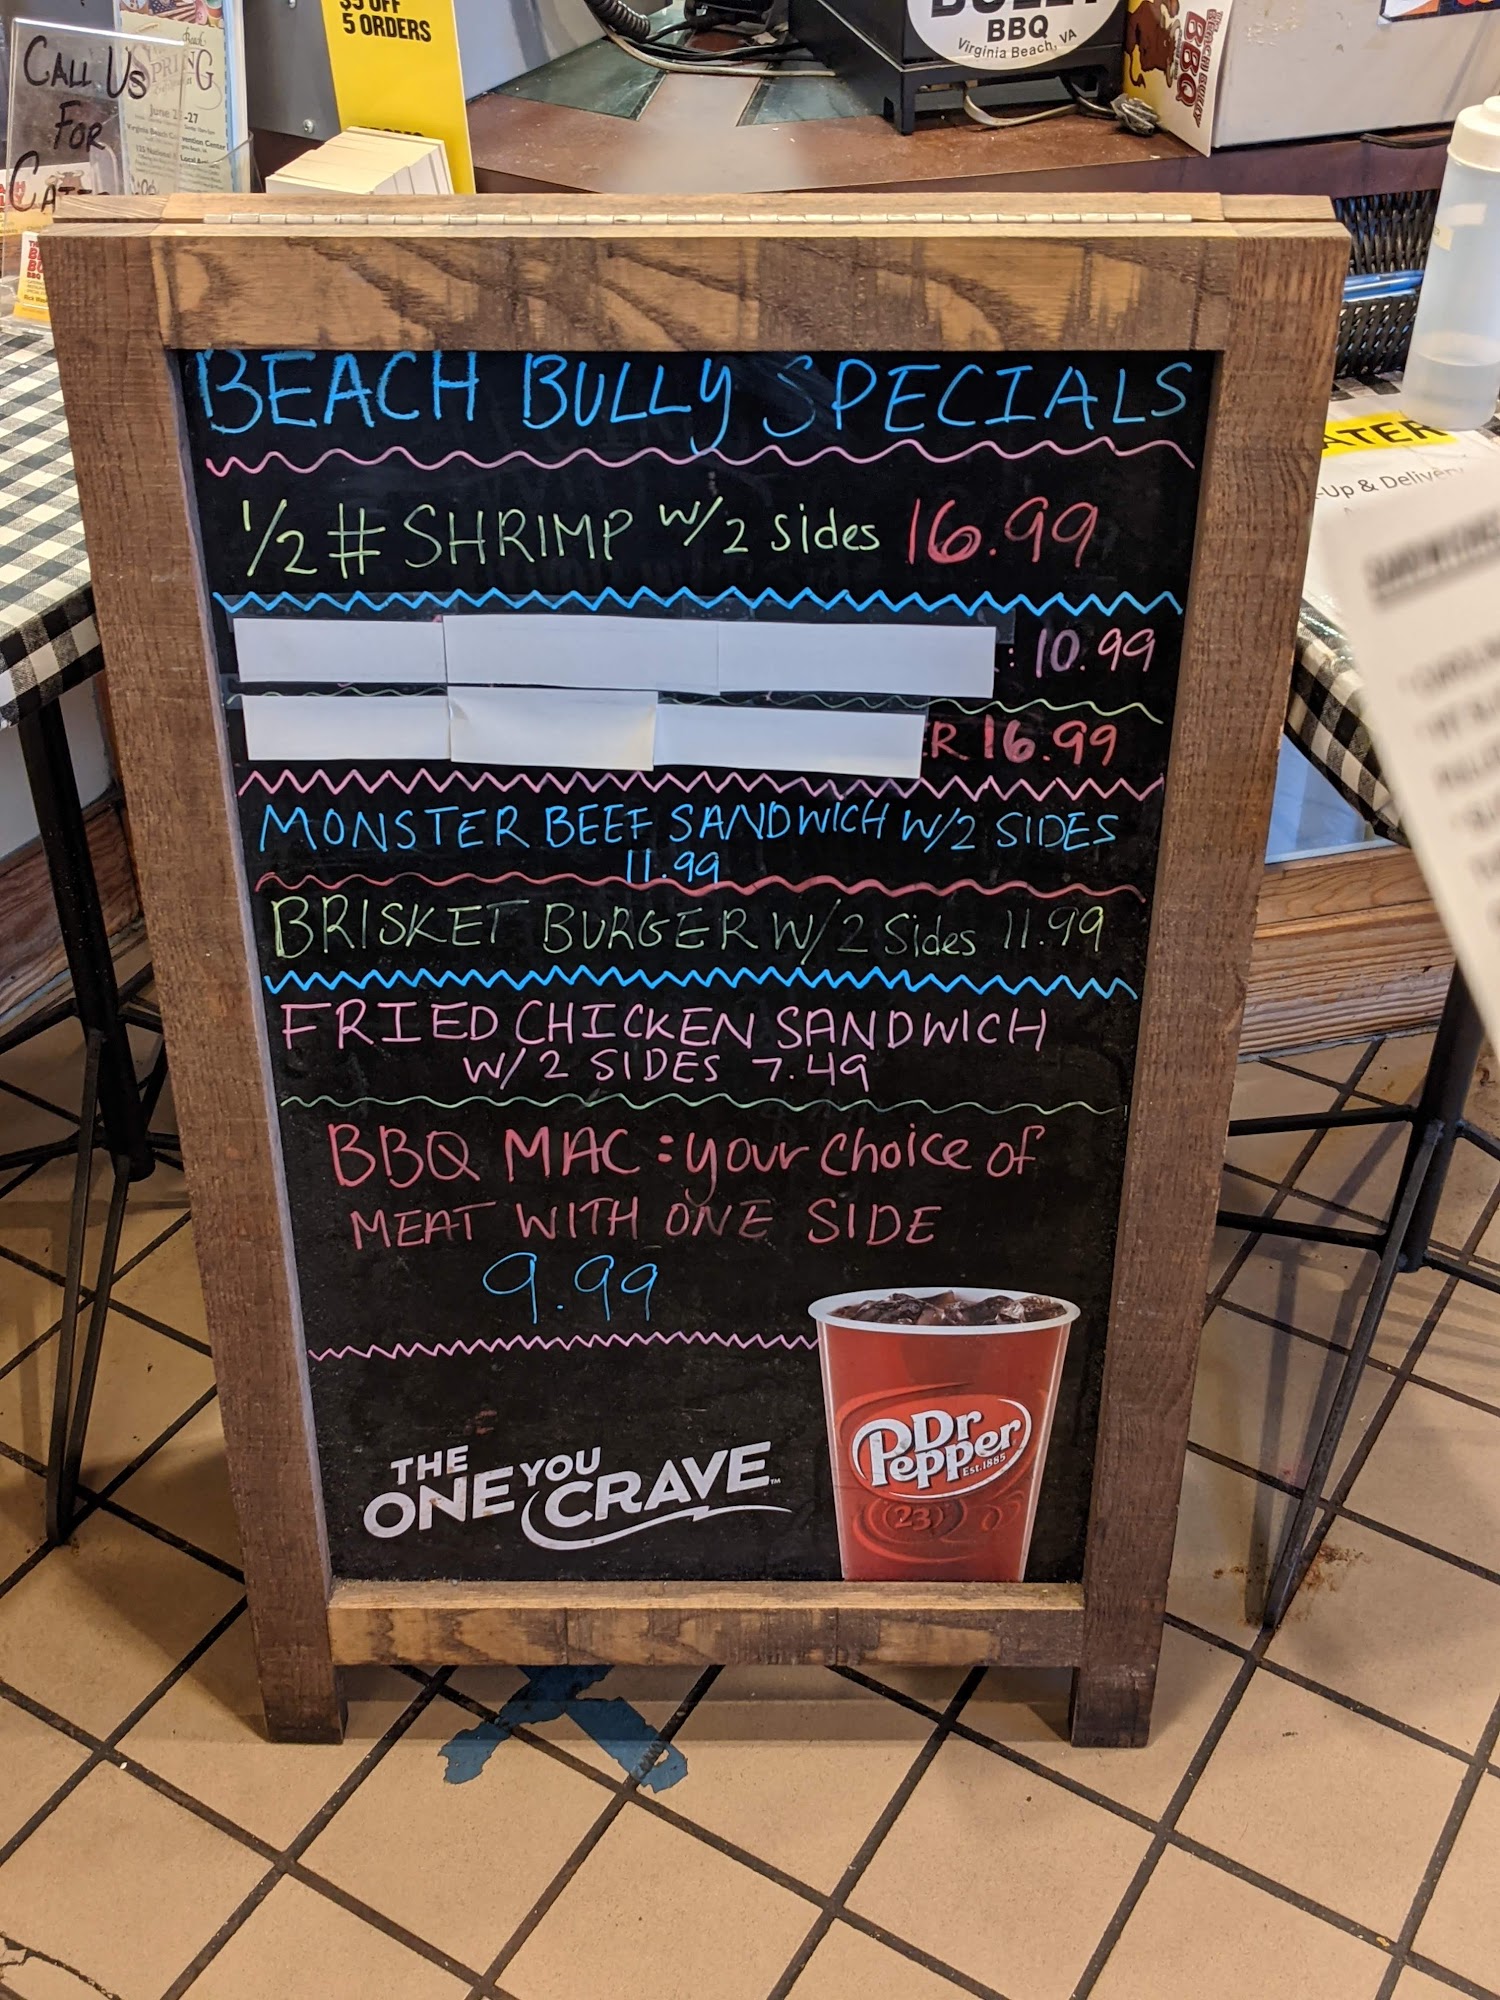 $5 OFF
5 ORDERS
CALL US
FOR
BBQ
Virginia Beach, VA
BBQ
BEACH BULLY SPECIALS
1/2 # SHRIMP W/2 sides 16.99
: 10.99
R 16.99
MONSTER BEEF SANDWICH W/2 SIDES
11.99
BRISKET BURGER W/2 Sides 11.99
FRIED CHICKEN SANDWICH
W/2 SIDES 7.49
BBQ MAC: your choice of
MEAT WITH ONE SIDE
9.99
THE
ONE YOU
CRAVE™
Dr
Pepper
Est. 1885
23
-Up & Delivery